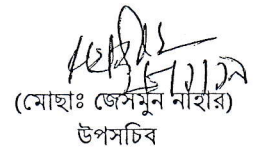 (মোছাঃ জেসমুন নাহার)
উপসচিব